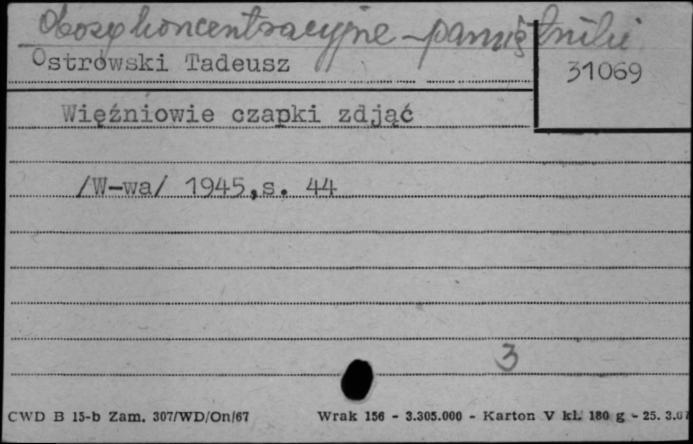 Obozy koncentracyjne - pamiętniki
Ostrowski Tadeusz
31069
Więźniowie czapki zdjąć
/W-wa/ 1945,s. 44
3
CWD B 15-b Zam. 307/WD/On/67 Wrak 156 - 3.305.000 - Karton V kl. 180 g - 25. 3.67